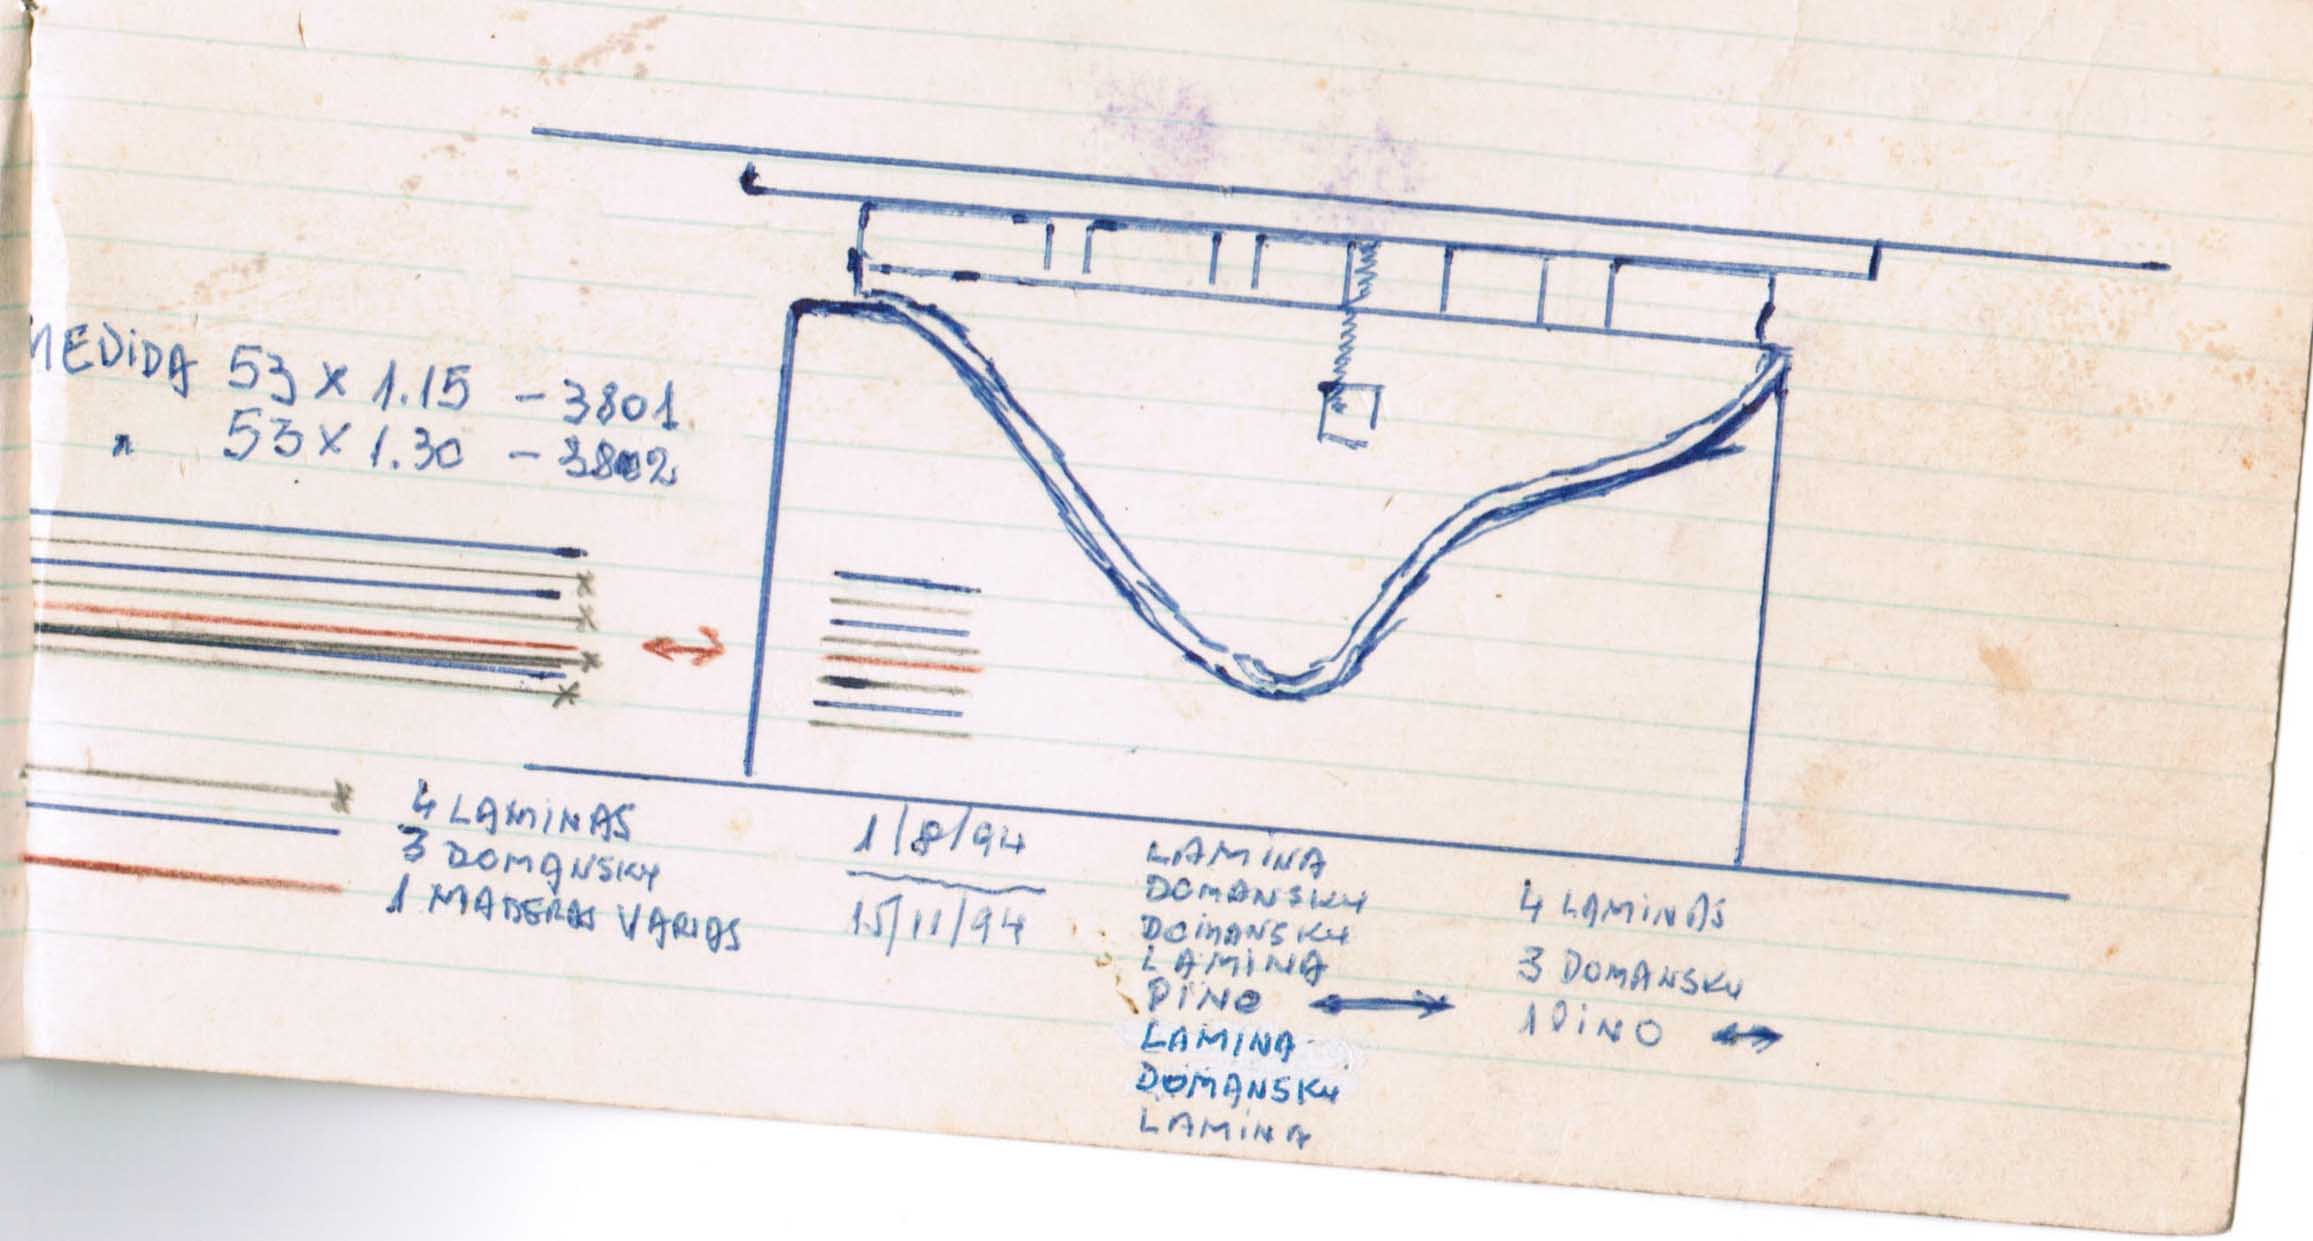 MEDIDA 53 x 1.15 - 3801
" 53 x 1.30 - 3802
4 LAMINAS
3 DOMANSKY
1 MADERAS VARIAS
1/8/94
15/11/94
LAMINA
DOMANSKY
DOMANSKY
LAMINA
PINO
LAMINA
DOMANSKY
LAMINA
4 LAMINAS
3 DOMANSKY
1 PINO